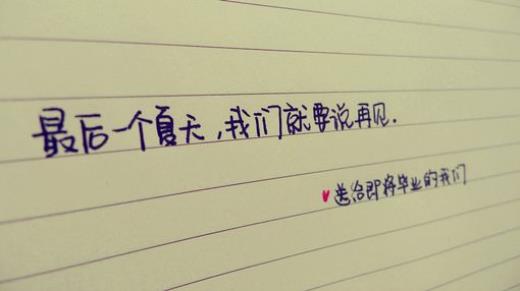 最后一个夏天,我们就要说再见.
♥送给即将毕业的我们